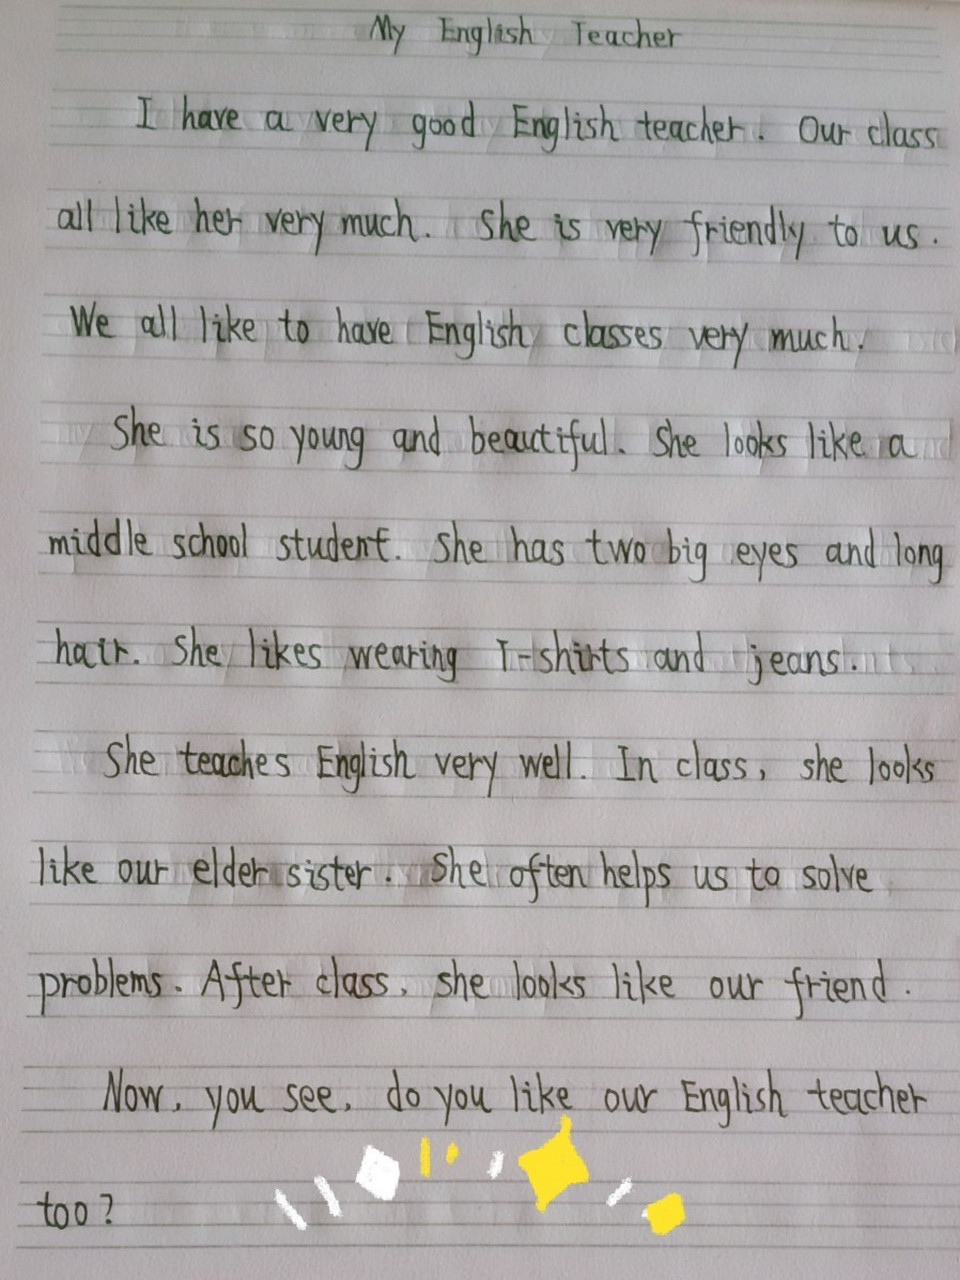 My English Teacher
I have a very good English teacher. Our class
all like her very much. She is very friendly to us.
We all like to have English classes very much.
She is so young and beautiful. She looks like a
middle school student. She has two big eyes and long
hair. She likes wearing T-shirts and jeans.
She teaches English very well. In class, she looks
like our elder sister. She often helps us to solve
problems. After class, she looks like our friend.
Now, you see, do you like our English teacher
too?